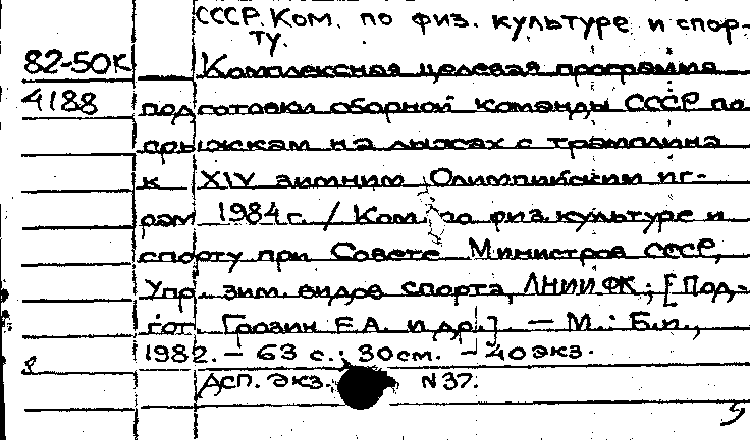 СССР. Ком. по физ. культуре и спор-
ту.
82-50К Комплексная целевая программа
4188 подготовки сборной команды СССР по
прыжкам на лыжах с трамплина
к XIV зимним Олимпийским иг-
рам 1984 г. / Ком. по физ. культуре и
спорту при Совете Министров СССР,
Упр. зим. видов спорта, ЛНИИФК; [Под-
гот. Грозин Е.А. и др.]. — М.: Б.и.,
1982. — 63 с.; 30 см. — 40 экз.
Дсп. Экз. N 37.